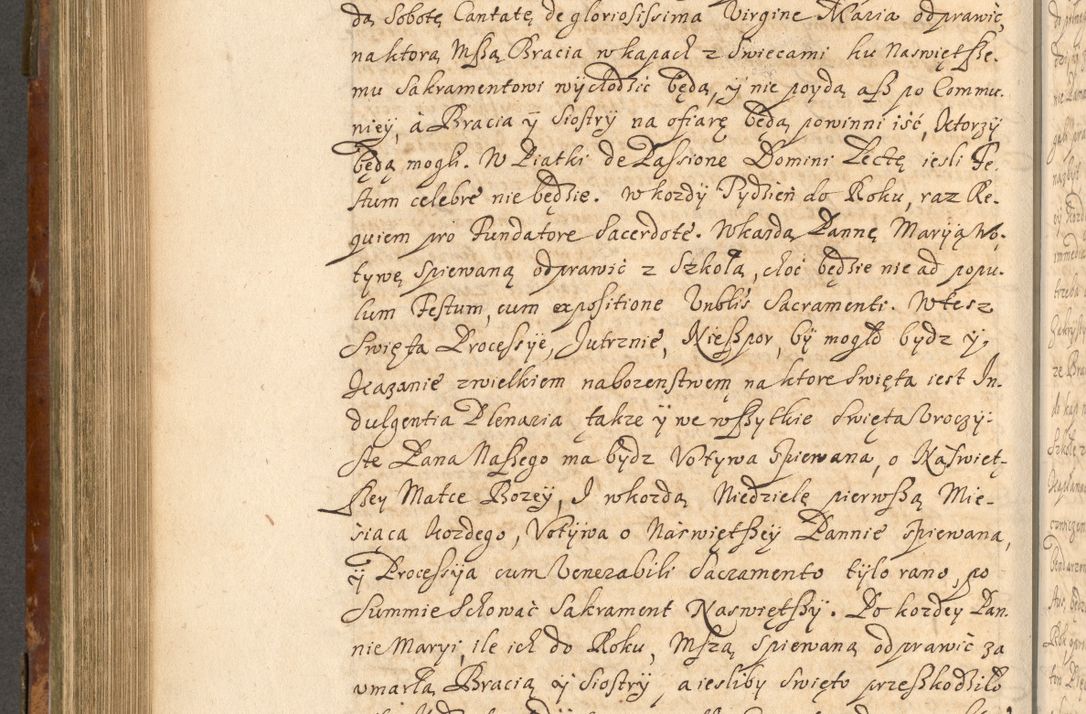 dą Sobotę Cantatę de gloriosissima Virgine Maria odprawić,
na ktorą Mszą Bracia w kapach z swiecami ku Naswiętsze-
mu Sakramentowi wychodzic będą, ÿ nie poydą asz po Commu-
niey, á Bracia ÿ Siostrÿ na ofiarę będą powinni isć, ktorzÿ
będą mogli. W Piątki de Passione Domini Lectę iesli Fe-
stum celebre nie będzie. W kozdÿ Tÿdzień do Roku, raz Re-
quiem pro Fundatore Sacerdote. W kazdą Pannę Maryią Wo-
tywę spiewaną odprawić z Szkołą, choć będzie nie ad popu-
lum Festum, cum expositione Vnblis Sacramenti. W tesz
Swięta Processye, Jutrznie, Nieszpor, bÿ mogło bydz ÿ
Kazanie z wielkiem nabozenstwem na ktore swięta iest In-
dulgentia Plenaria także ÿ we wszytkie swięta Vroczÿ-
ste Pana Naszego ma bydz Votywa spiewana, o Naswięt-
szey Matce Bozeÿ, I w kozdą Niedzielę pierwszą Mie-
siąca kozdego, Votÿwa o Naswiętszey Pannie spiewana,
ÿ Processÿa cum Venerabili Sacramento tÿlo rano, po
Summie Schować Sakrament Naswiętszÿ. Po kozdey Pan-
nie Maryi, ile ich do Roku, Mszą spiewaną odprawić za
vmarłą Bracią ÿ Siostrÿ, a iesliby swięto przeszkodziło